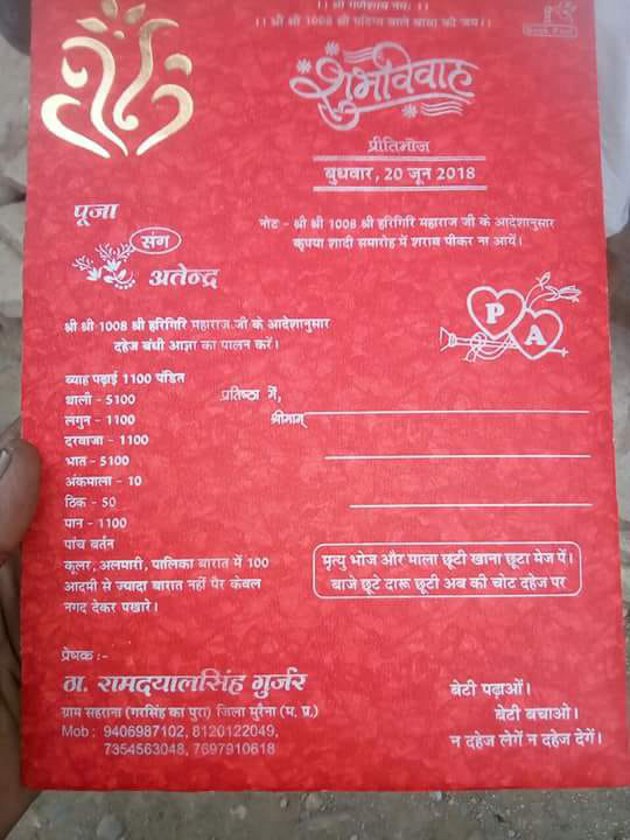 ।। श्री गणेशाय नमः ।।
।। श्री श्री 1008 श्री पटिया वाले बाबा की जय।।
शुभविवाह
प्रीतिभोज
बुधवार, 20 जून 2018
पूजा
संग
अतेन्द्र
नोट - श्री श्री 1008 श्री हरिगिरि महाराज जी के आदेशानुसार
कृपया शादी समारोह में शराब पीकर ना आयें।
P
A
श्री श्री 1008 श्री हरिगिरि महाराज जी के आदेशानुसार
दहेज बंधी आज्ञा का पालन करें।
ब्याह पढ़ाई 1100 पंडित
थाली - 5100
लगुन - 1100
दरवाजा - 1100
भात - 5100
अंकमाला - 10
ठिक - 50
पान - 1100
पांच बर्तन
कूलर, अलमारी, पालिका बारात में 100
आदमी से ज्यादा बारात नहीं पैर केवल
नगद देकर पखारे।
प्रतिष्ठा में,
श्रीमान्
मृत्यु भोज और माला छूटी खाना छूटा मेज पें।
बाजे छूटे दारू छूटी अब की चोट दहेज पर
प्रेषक :-
ठा. रामदयालसिंह गुर्जर
ग्राम सहराना (गरसिंह का पुरा) जिला मुरैना (म. प्र.)
Mob : 9406987102, 8120122049,
7354563048, 7697910618
बेटी पढ़ाओं।
बेटी बचाओ।
न दहेज लेगें न दहेज देगें।